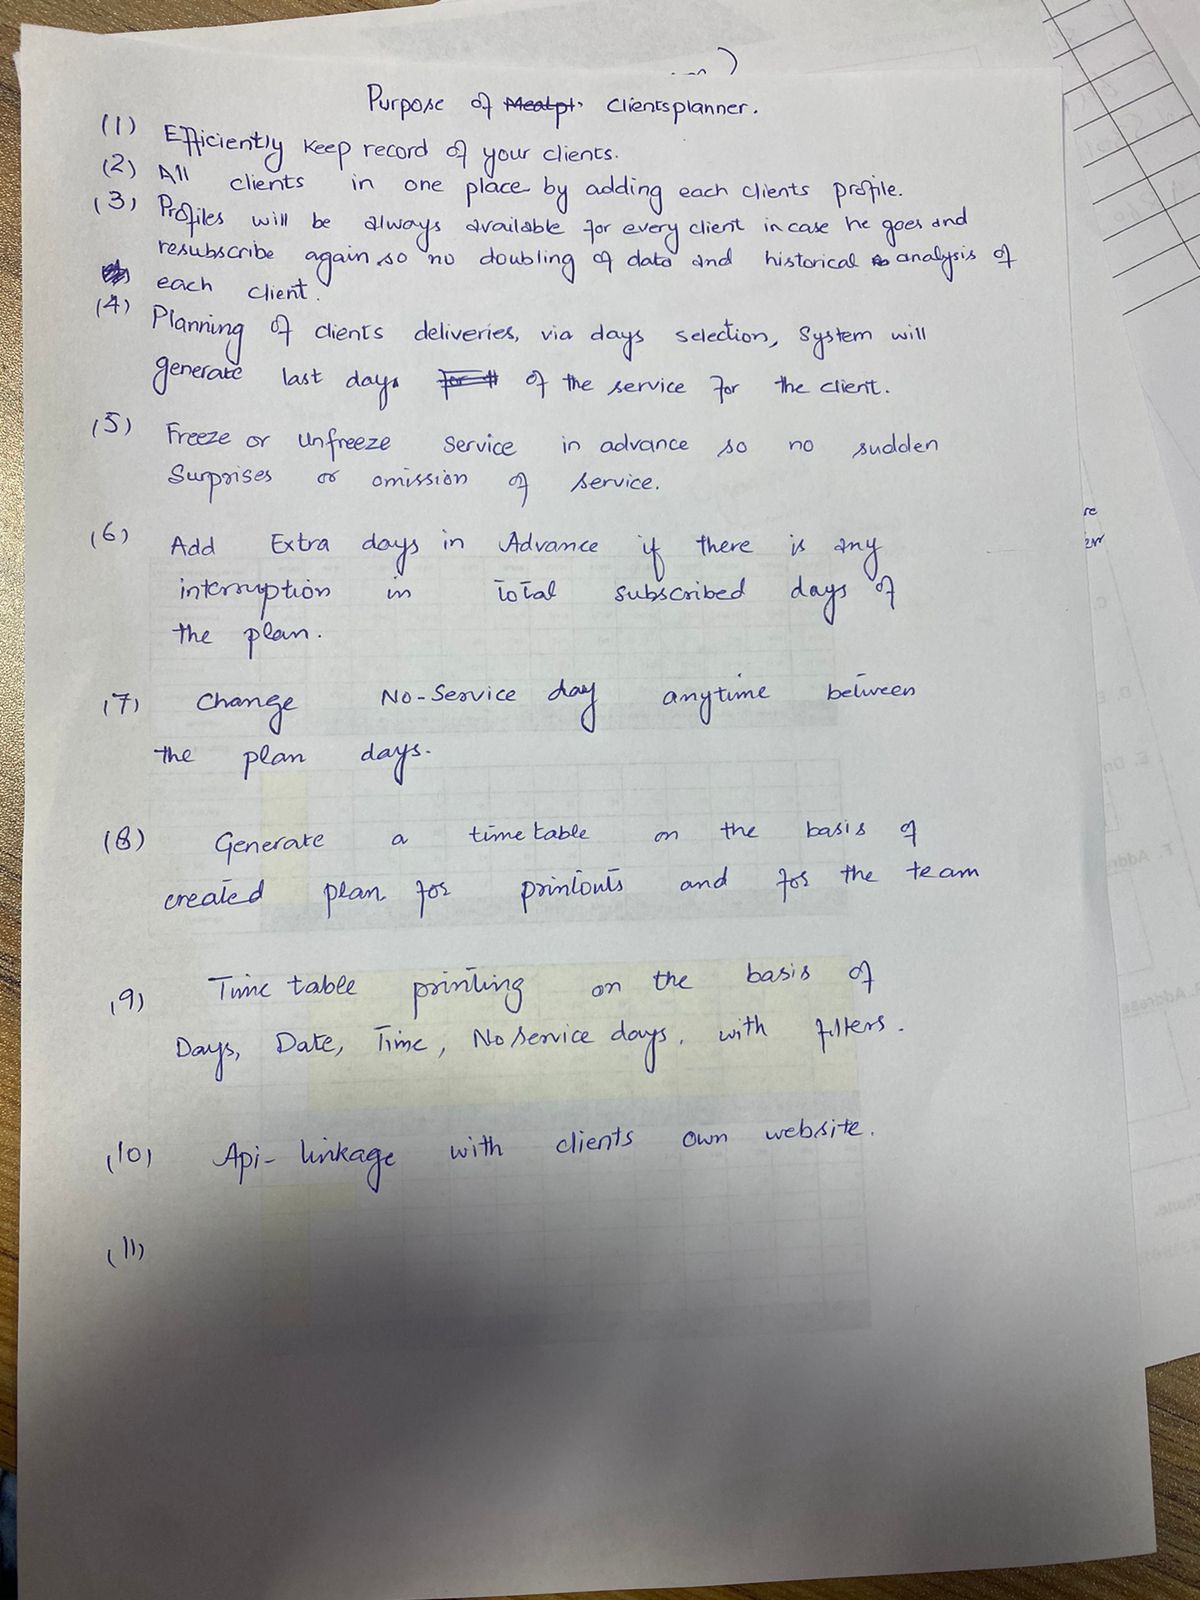 Purpose of Mealpl. Clientsplanner.
(1) Efficiently Keep record of your clients.
(2) All clients in one place by adding each clients profile.
(3) Profiles will be always available for every client in case he goes and
resubscribe again so no doubling of data and historical analysis of
each client.
(4) Planning of clients deliveries, via days selection, System will
generate last day of the service for the client.
(5) Freeze or Unfreeze Service in advance so no sudden
Surprises or omission of service.
(6) Add Extra days in Advance if there is any
interruption in total subscribed days of
the plan.
(7) Change No-Service day anytime between
the plan days.
(8) Generate a time table on the basis of
created plan for printouts and for the team
(9) Time table printing on the basis of
Days, Date, Time, No service days, with filters.
(10) Api-linkage with clients own website.
(11)